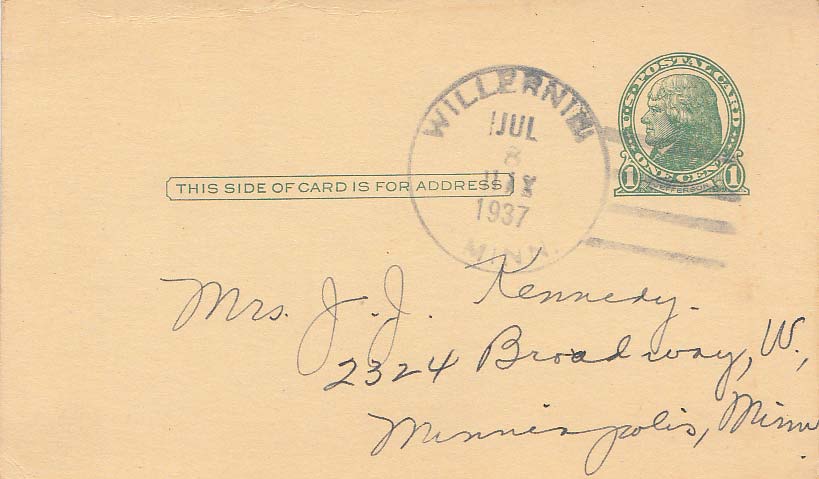 U.S. POSTAL CARD
ONE CENT
1 JEFFERSON 1
WILLERNIE
JUL
8
1937
MINN.
THIS SIDE OF CARD IS FOR ADDRESS
Mrs. J. J. Kennedy.
2324 Broadway, W.,
Minneapolis, Minn